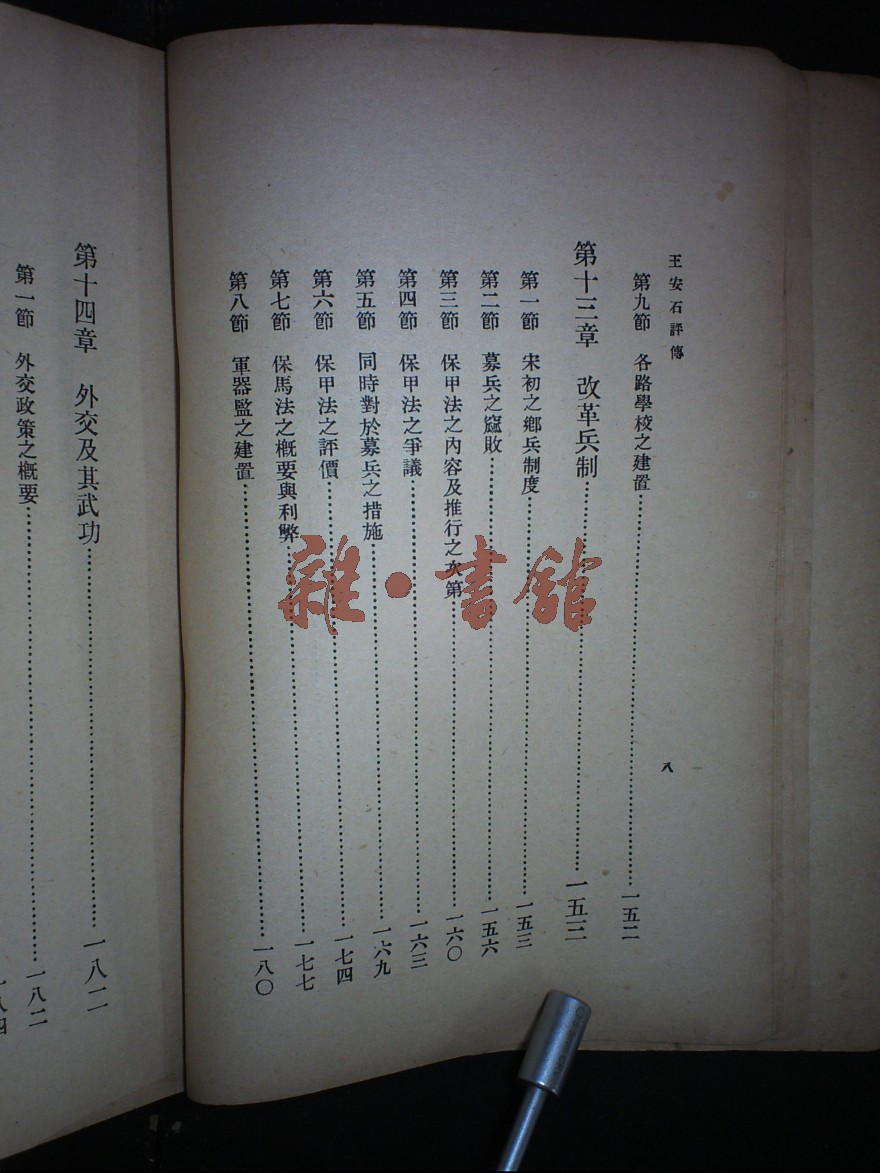 王安石評傳
八
第九節 各路學校之建置……一五二
第十三章 改革兵制……一五三
第一節 宋初之鄉兵制度……一五三
第二節 募兵之窳敗……一五六
第三節 保甲法之內容及推行之次第……一六〇
第四節 保甲法之爭議……一六三
第五節 同時對於募兵之措施……一六九
第六節 保甲法之評價……一七四
第七節 保馬法之概要與利弊……一七七
第八節 軍器監之建置……一八〇
第十四章 外交及其武功……一八二
第一節 外交政策之概要……一八二
一八四
雜·書館